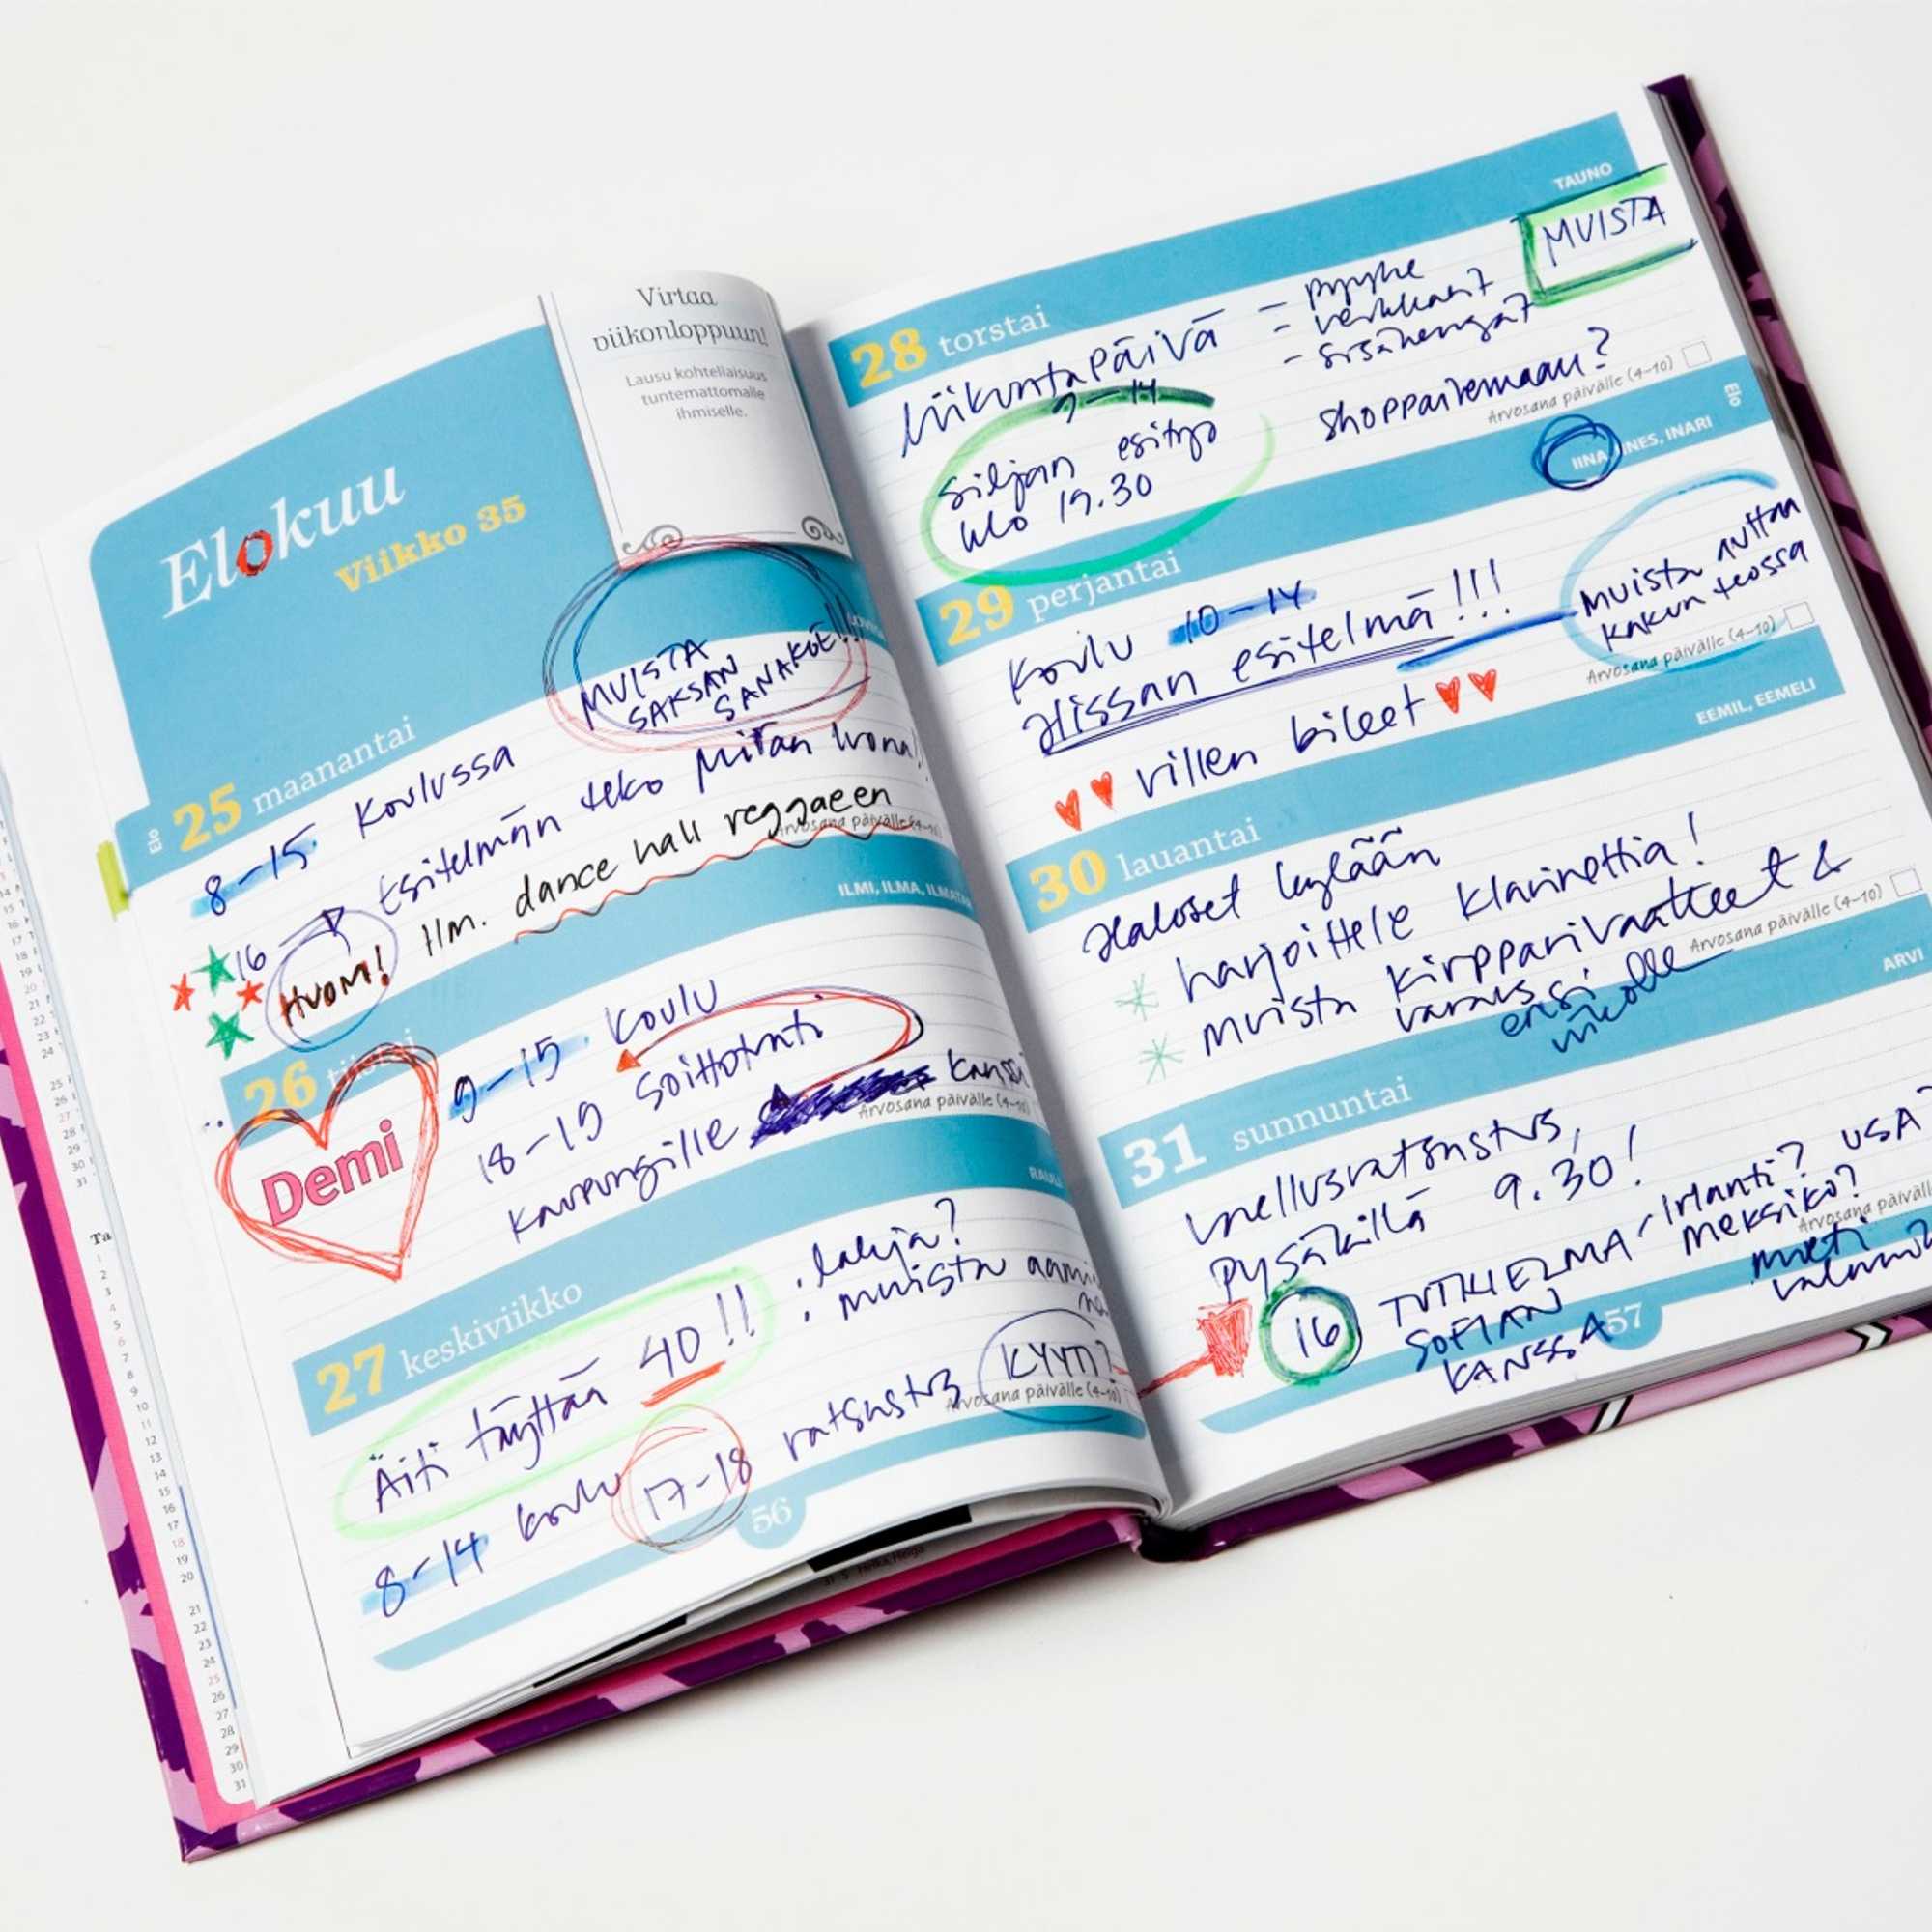 Elokuu
Viikko 35
Virtaa
viikonloppuun!
Lausu kohteliaisuus
tuntemattomalle
ihmiselle.
Elo
25 maanantai
MUISTA
SAKSAN
SANAKOE!!
8-15 koulussa
16 Esitelmän teko Miran luona!
HUOM! Ilm. dance hall reggaeen
Arvosana päivälle (4-10)
26 tiistai
ILMI, ILMA,
Demi
9-15 koulu
18-19 soittotunti
Kaupungille kanssa
Arvosana päivälle (4-10)
27 keskiviikko
Äiti täyttää 40!!
lahja?
muista
8-14 koulu 17-18 ratsastus KYYTI?
Arvosana päivälle (4-10)
56
28 torstai
TAUNO
MUISTA
Liikuntapäivä
9-14
- pyyhe
- verkkarit
- sisäkengät
Siljan esitys
klo 19.30
shoppailemaan?
Arvosana päivälle (4-10)
Elo
29 perjantai
IINA, INES, INARI
Koulu 10-14
Hissan esitelmä!!!
Muista auttaa
kakun teossa
Villen bileet
Arvosana päivälle (4-10)
30 lauantai
EEMIL, EEMELI
Haloset kylään
* harjoittele klarinettia!
* muista kirpparivaatteet &
varaus
ensi
viikolle
Arvosana päivälle (4-10)
31 sunnuntai
ARVI
Vaellusratsastus,
pysäkillä 9.30!
16 TUTKIELMA
SOFIAN
KANSSA
Irlanti? USA
Meksiko?
Arvosana
mieti
57